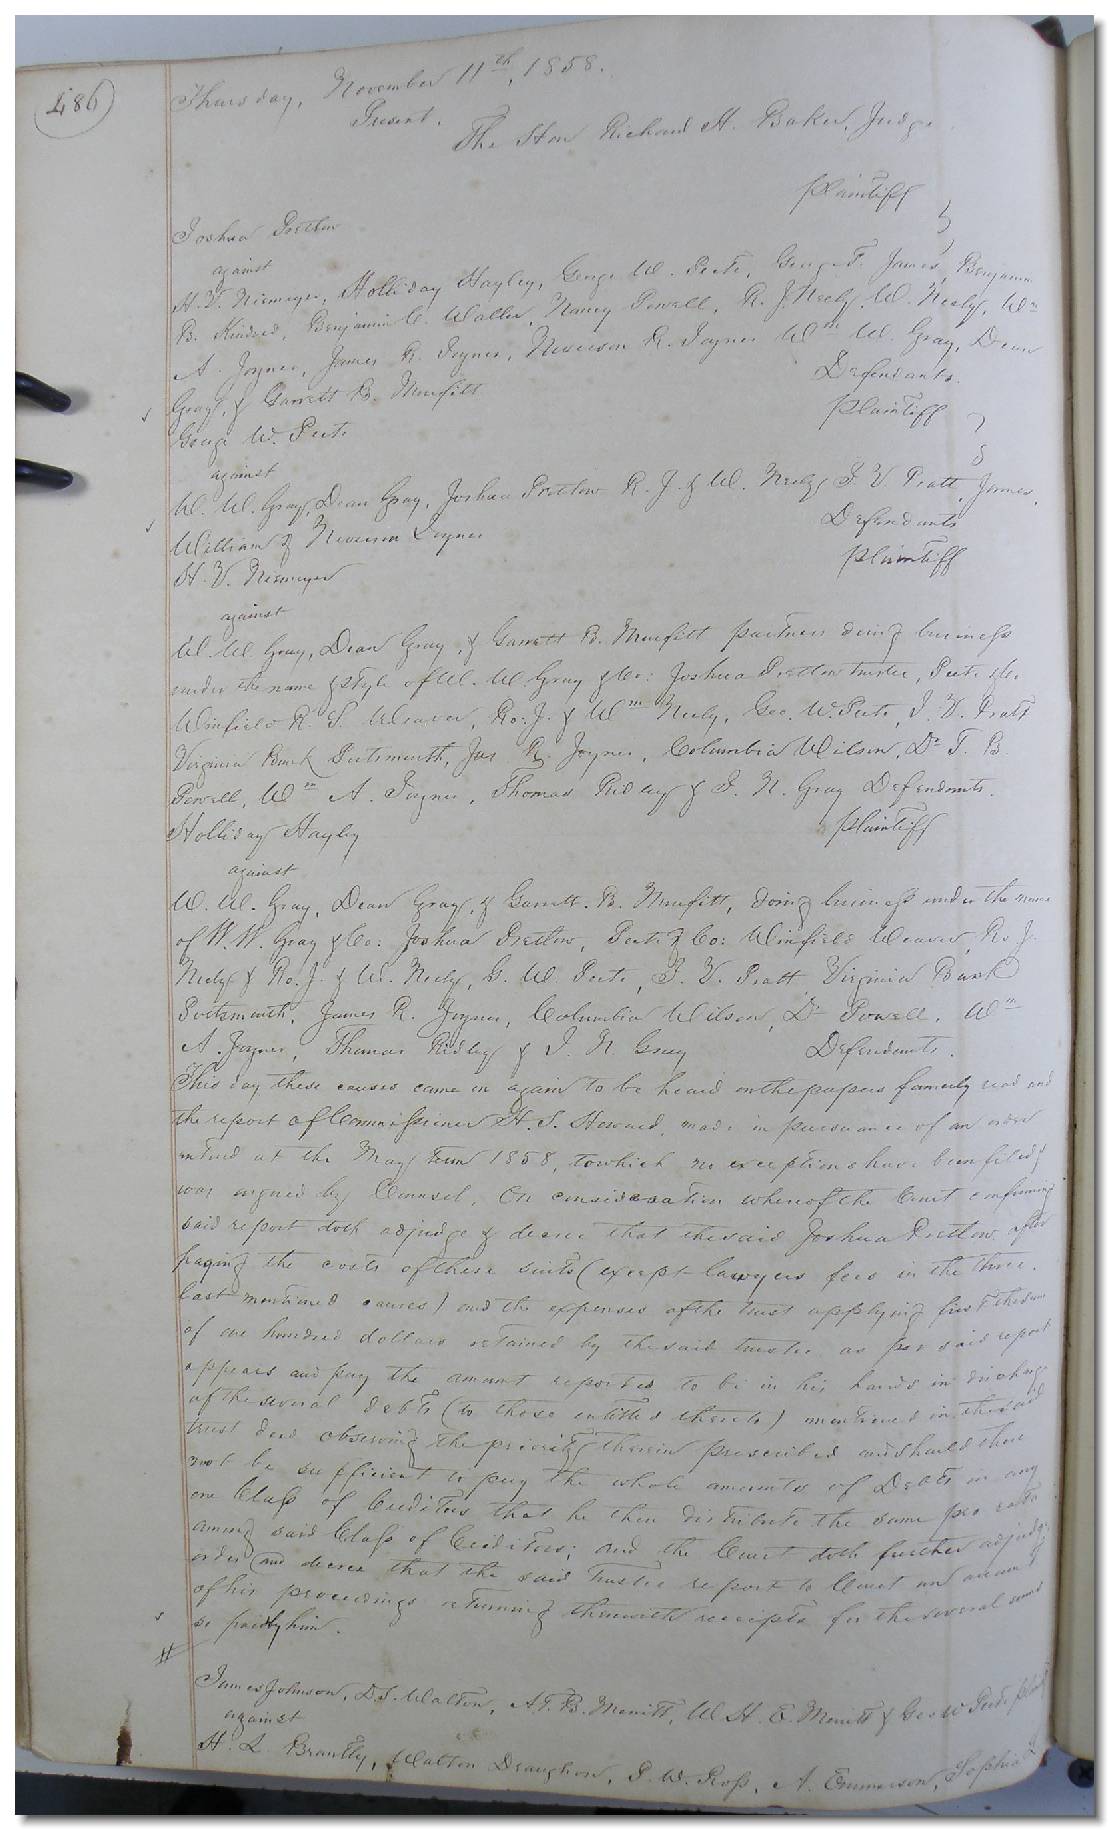 486
Thursday, November 11th, 1858.
Present.
The Hon Richard H. Baker, Judge
Plaintiff
Joshua Pretlow
against
H. V. Niemeyer, Holliday Hayley, George W. Peete, George T. James, Benjamin
B. Kindred, Benjamin C. Waller, Nancy Powell, R. J. Neely, W. Neely, Wm
A. Joyner, James R. Joyner, Neverson R. Joyner Wm W. Gray, Dean
Gray, & Garrett B. Murfitt
Defendants.
George W. Peete
Plaintiff
against
W. W. Gray, Dean Gray, Joshua Pretlow R. J. & W. Neely J V. Pratt, James,
William & Neverson Joyner
Defendants
H. V. Niemeyer
Plaintiff
against
W. W. Gray, Dean Gray, & Garrett B. Murfitt partners doing business
under the name & style of W. W. Gray & Co: Joshua Pretlow trustee, Peete & Co.
Winfield R. S. Weaver, Ro: J. & Wm Neely, Geo. W. Peete, J. V. Pratt
Virginia Bank Portsmouth, Jas R. Joyner, Columbia Wilson, Dr T. B
Powell, Wm A. Joyner, Thomas Ridley & J. N. Gray Defendants.
Holliday Hayley
Plaintiff
against
W. W. Gray, Dean Gray, & Garrett. B. Murfitt, doing business under the name
of W. W. Gray & Co: Joshua Pretlow, Peete & Co: Winfield Weaver, Ro J.
Neely & Ro. J. & W. Neely, G. W Peete, J. V. Pratt Virginia Bank
Portsmouth, James R. Joyner, Columbia Wilson, Dr Powell, Wm
A. Joyner, Thomas Ridley & J. N Gray
Defendants.
This day these causes came on again to be heard on the papers formerly read and
the report of Commissioner H. S. Howard, made in pursuance of an order
entered at the May term 1858, to which no exceptions have been filed &
was argued by Counsel, On consideration whereof the Court confirming
said report doth adjudge & decree that the said Joshua Pretlow after
paying the costs of these suits (except lawyers fees in the three
last mentioned causes) and the expenses of the trust applying first the sum
of one hundred dollars retained by the said trustee as per said report
appears and pay the amount reported to be in his hands in discharge
of the several debts (to those entitled thereto) mentioned in the said
trust deed observing the priority therein prescribed and should there
not be sufficient to pay the whole amounts of Debts in any
one Class of Creditors that he then distribute the same pro rata
among said Class of Creditors; and the Court doth further adjudge
order and decree that the said Trustee report to Court an account
of his proceedings returning therewith receipts for the several sums
so paid by him.
James Johnson, D S. Walton, A. T. B. Merritt, W H. E. Merritt & Geo W Peete Plaintiff
against
H. L Brantly, Walton Draughon, P. W. Ross, A. Emmerson, Sophia